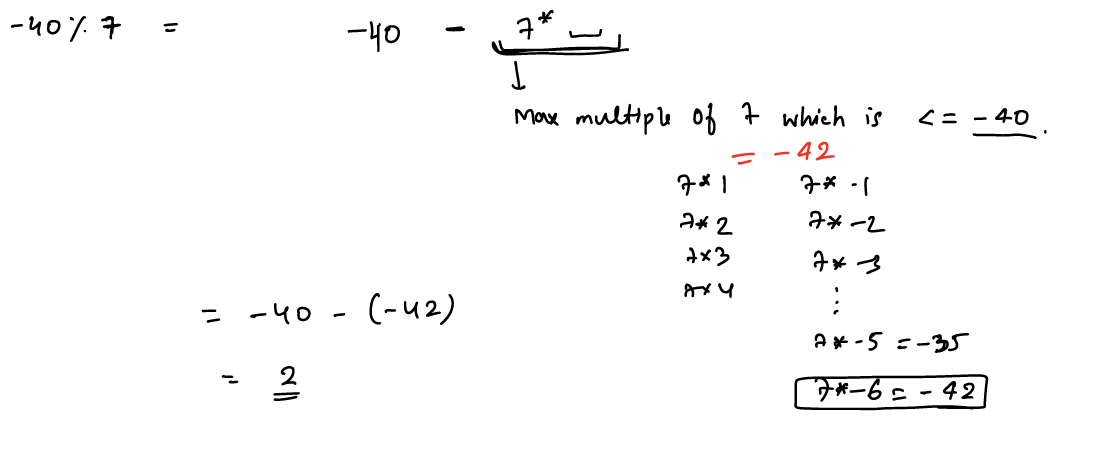 -40 % 7 = -40 - 7* ⎵
Max multiple of 7 which is <= -40.
= -42
7*1 7* -1
7*2 7* -2
7*3 7* -3
7*4 ⋮
7* -5 = -35
= -40 - (-42)
7*-6 = -42
= 2